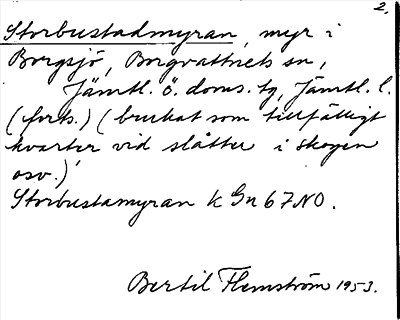 2.
Storbustadmyran, myr i
Borgsjö, Borgvattnets sn,
Jämtl. ö. doms. tg, Jämtl. l.
(forts.) (brukat som tillfälligt
kvarter vid slåtter i skogen
osv.)
Storbustamyran k Gn 67NO.
Bertil Flemström 1953.